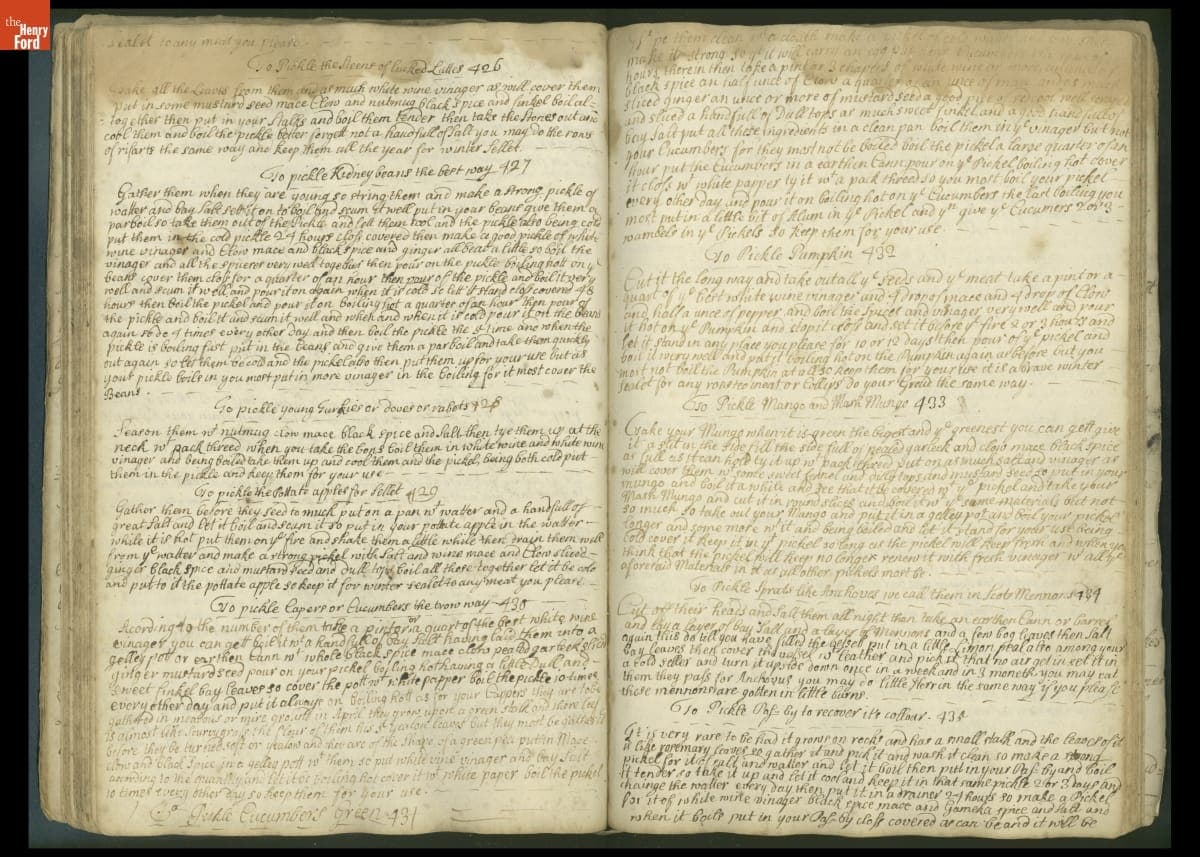 the Henry Ford
sealet to any meat you please
To Pickle the Steens of Lucked Lattes 426
Take all the Leaves from them and as much white wine vinager as will cover them
put in some mustard seed mace Clow and nutmug black spice and finkel boil al-
together then put in your Stalks and boil them tender then take the Stones out and
cool them and boil the pickle better forgett not a handfull of Salt you may do the rons
of rifarts the same way and keep them all the year for winter Sellet.
To pickle Kidney beans the best way 427
Gather them when they are young so string them and make a strong pickle of
water and bay Salt sett it on to boil and scum it well put in your beans give them a
parboil so take them out of the Pickle and lett them cool and the pickle also being cold
put them in the cold pickle 24 hours closs covered then make a good pickle of white
wine vinager and Clow mace and black spice and ginger all beat a little so boil the
vinager and all the spicerer very well together then pour on the pickle boiling hott on yᵉ
beans cover them closs for a quarter of an hour then pour of the pickle and boil it very
well and scum it well and pour it on again when it is cold so lett it stand closs covered 48
hours then boil the pickel and pour it on boiling hot a quarter of an hour then pour of
the pickle and boil it and scum it well and when and when it is cold pour it on the beans
again so do 4 times every other day and then boil the pickle the 5 time and when the
pickle is boiling fast put in the beans and give them a parboil and take them quickly
out again so let them be cold and the pickel also then put them up for your use but as
your pickle boils in you most put in more vinager in the boiling for it most cover the
Beans.
To pickle young Turkies or doves or rabots 428
Season them wᵗ nutmug clow mace black spice and Salt then tye them up at the
neck wᵗ pack threed when you take the bons boil them in white wine and white wine
vinager and being boiled take them up and cool them and the pickel, being both cold put
them in the pickle and keep them for your use
To pickle the Pottate apples for Sellet 429
Gather them before they seed to much put on a pan wᵗ watter and a handfull of
great Salt and let it boil and scum it so put in your pottate apple in the watter
while it is hot put them on yᵉ fire and shake them a little while then drain them well
from yᵉ watter and make a strong pickel with Salt and wine mace and Clow sliced
ginger black spice and mustard seed and dull tops boil all these together let it be cold
and put to it the pottate apple so keep it for winter sealet to any meat you please.
To pickle Capers or Cucumbers the trow way 430
Acording to the number of them take a pint or a quart of the best white wine
vinager you can gett boil it wᵗ a handfull of bay Salt having laid them into a
gelley pot or earthen cann wᵗ whole black spice mace clow peald garleek sliced
ginger mustard seed pour on your pickel boiling hot having a little Dull and
sweet finkel bay leaves so cover the pott wᵗ white papper boil the pickle 10 times
every other day and put it always on boiling hott as for your Cappers they are to be
gathered in meadous or mire grounds in April they grow upon a green stalk and there leef
is almost like scurvy grass the flour of them has 5 yealou leaves but they most be gathered
before they be turned soft or yealou and they are of the shape of a green pea put in Mace
clow and black Spice in a gelley pott wᵗ them so put white wine vinager and bay Salt
according to the quantity and let it be boiling hot cover it wᵗ white paper boil the pickel
10 times every other day so keep them for your use.
To Pickle Cucumbers Green 431
Wipe them clean wᵗ a cloath make a
make it strong so yᵗ it will carry an egg
hours therein then take a pint or 3 chapens of white wine
black spice an half unce of Clow a quarter of an unce of
sliced ginger an unce or more of mustard seed a good
and sliced a handfull of Dull tops as much sweet finkel and a good handfull of
bay Salt put all these ingredients in a clean pan boil them in yᵉ vinager but not
your Cucumbers for they most not be boiled boil the pickel a large quarter of an
hour put the Cucumbers in a earthen Cann pour on yᵉ Pickel boiling hot cover
it closs wᵗ white papper ty it wᵗ a pack threed so you most boil your pickel
every other day and pour it on boiling hot on yᵉ Cucumbers the last boiling you
most put in a little bit of Alum in yᵉ Pickel and yⁿ give yᵉ Cucumers 2 or 3
wamkels in yᵉ Pickels so keep them for your use
To Pickle Pumpkin 432
Cut it the long way and take out all yᵉ seeds and yᵉ meat take a pint or a
quart of yᵉ best white wine vinager and 4 drop of mace and 4 drop of Clow
and half a unce of pepper and boil the Spices and vinager very well and pour
it hot on yᵉ Pumpkin and stop it closs and set it before yᵉ fire 2 or 3 hours and
let it stand in any place you please for 10 or 12 days then pour of yᵉ pickel and
boil it very well and put it boiling hot on the Pumpkin again as before but you
most not boil the Pumpkin at all so keep them for your use it is a brave winter
sealot for any roasted meat or Collops do your Groud the same way.
To Pickle Mango and Mark Mungo 433
Take your Mungo when it is green the bigest and yᵉ greenest you can gett give
it a slit in the side fill the side full of pealed garleek and clow mace black spice
as full as it can hold ty it up wᵗ pack threed put on as much salt and vinager as
will cover them wᵗ some sweet fennel and dully tops and mustard seed so put in your
mungo and boil it a while and see that it be covered wᵗ yᵉ pickel and take your
Mark Mungo and cut it in round slices and boil it wᵗ yᵉ same materials but not
so much so take out your Mango and put it in a gelley pot and boil your pickel
longer and some more wᵗ it and being boiled and let yᵐ stand for your use being
cold cover it keep it in yᵉ pickel so long as the pickel will keep fresh and when you
think that the pickel will keep no longer renew it with fresh vinager wᵗ all yᵉ
aforesaid Materials in it as all other pickels most be.
To Pickle Sprats like Anchoves we call them in Scots Mennons 434
Cut off their heads and Salt them all night than take an earthen Cann or barrel
and lay a layer of bay Salt and a layer of Mennons and a few bog leaves then Salt
again this do till you have filled the vessel put in a little Limon peal also among your
bay leaves then cover the vessel wᵗ leather and pick it that no air get in set it in
a cold seller and turn it upside down once in a week and in 3 moneth you may eat
them they pass for Anchovus you may do little Herrin the same way if you please
these mennons are gotten in little burns.
To Pickle Pas=by to recover it's collour. 435
It is very rare to be had it grows on rocks and has a small stalk and the leaves of it
is like rosemary leaves so gather it and pick it and wash it clean so make a strong
pickel for it of salt and watter and let it boil then put in your Pas=by and boil
it tender so take it up and let it cool and keep it in that same pickle 2 or 3 days and
change the watter every day then put it in a drainer 24 hours so make a Pickel
for it of white wine vinager black spice mace and Gameka spice and salt and
when it boils put in your Pas=by closs covered as can be and it will be